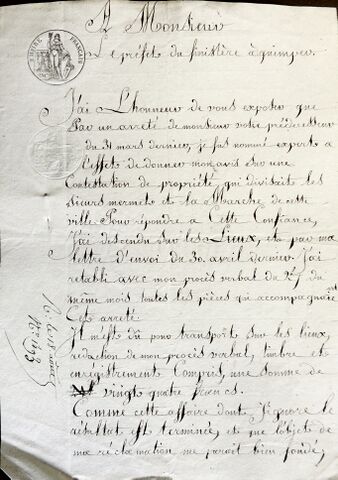 EMPIRE FRANÇAIS
A Monsieur
Le préfet du finistère à quimper.
J'ai L'honneur de vous exposer que
Par un arreté de monsieur votre prédécesseur
du 31 mars dernier, je fus nommé expert a
L'effet de donner mon avis sur une
Contestation de propriété, qui divisait les
Sieurs mermet et la Marche de cette
ville Pour répondre a Cette Confiance,
J'ai descendu Sur les Lieux, et par ma
Lettre d'envoi du 30. avril dernier. J'ai
retabli avec mon procès verbal du 27 du
même mois toutes les pièces qui accompagnaient
Cet arreté.
Il m'est dû pour transport Sur les lieux,
rédaction de mon procès verbal, timbre et
enrégistrement Compris, une Somme de
vingt quatre francs.
Comme cette affaire dont J'ignore le
résultat est terminée, et que l'objet de
ma réclamation me parait bien fondé,